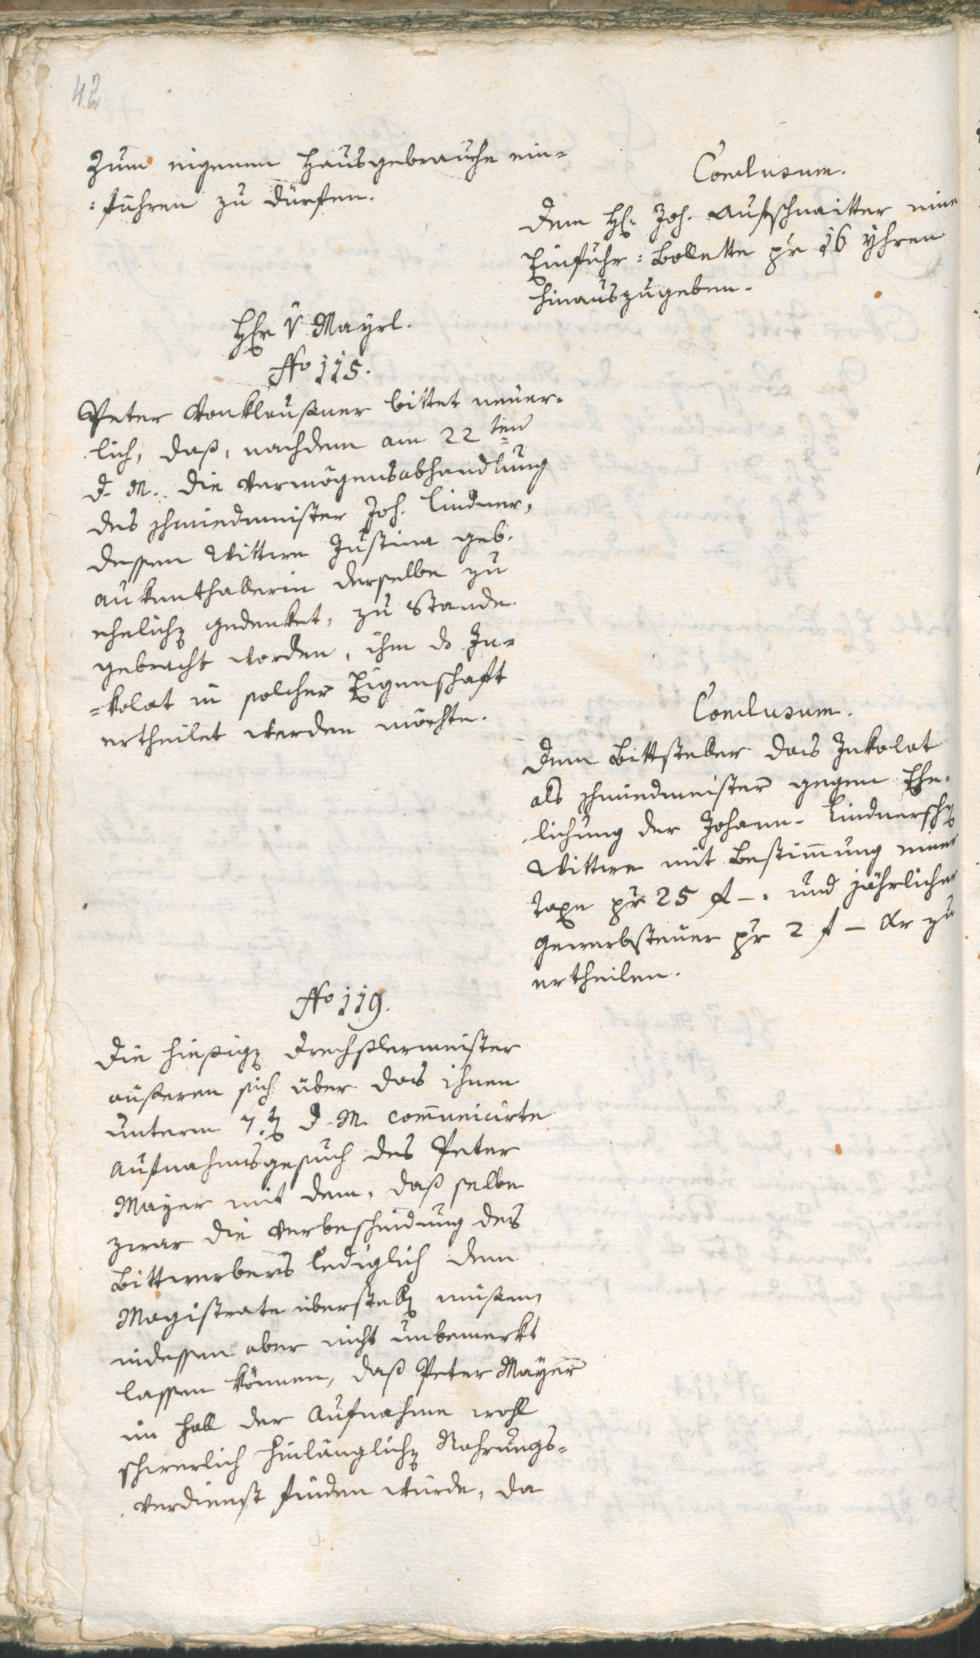 42
zum eigenen Hausgebrauche ein=
=führen zu dürfen.
Conclusum.
Dem H. Joh. Aufschnaitter eine
Einfuhr=Bollette pr 16 Yhren
hinauszugeben.
Hr v Mayrl.
No 115.
Peter Vonklausner bittet neuer=
lich, daß, nachdem am 22ten
d. M. die Vermögensabhandlung
des Schmiedmeister Joh. Lindner,
dessen Wittwe Justina geb.
Aukenthallerin derselbe zu
ehelichen gedenket, zu Stande
gebracht worden, ihm das In=
=kolat in solcher Eigenschaft
ertheilet werden möchte.
Conclusum.
Dem Bittsteller das Inkolat
als Schmiedmeister gegen Ehe=
lichung der Johann Lindnerschen
Wittwe mit Bestimmung einer
Taxe pr 25 f –. und jährlichen
Gewerbsteuer pr 2 f – kr zu
ertheilen.
No 119.
Die hießigen Drechslermeister
äußeren sich über das ihnen
unterm 7.ten d. M. comunicirte
Aufnahmsgesuch des Peter
Mayer mit dem, daß selbe
zwar die Verbescheidung des
Bittwerbers lediglich dem
Magistrate überstellen müßen,
indessen aber nicht unbemerkt
lassen können, daß Peter Mayer
im Fall der Aufnahme wohl
schwerlich hinlänglichen Nahrungs=
verdienst finden würde, da